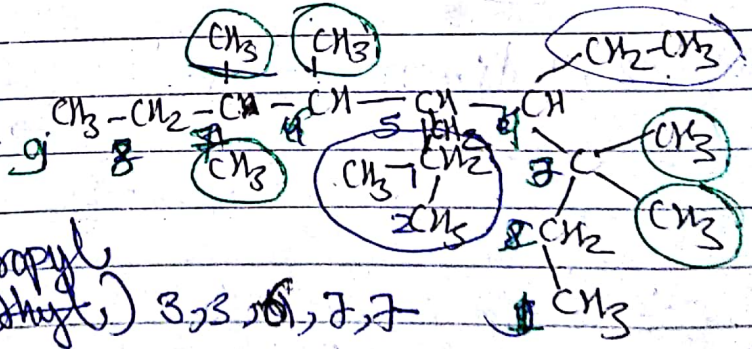 CH3 CH3 CH2-CH3
CH3-CH2-CH-CH-CH-CH
9 8 5 CH2 CH3
CH3 CH3-CH2 7 C
CH3 CH2 CH3
opyl
thyl) 3,3,6,7,7- 1 CH3